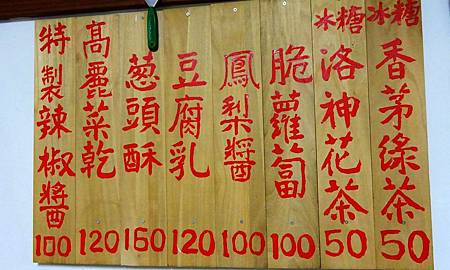 冰糖香茅綠茶50
冰糖洛神花茶50
脆蘿蔔100
鳳梨醬100
豆腐乳120
葱頭酥160
高麗菜乾120
特製辣椒醬100